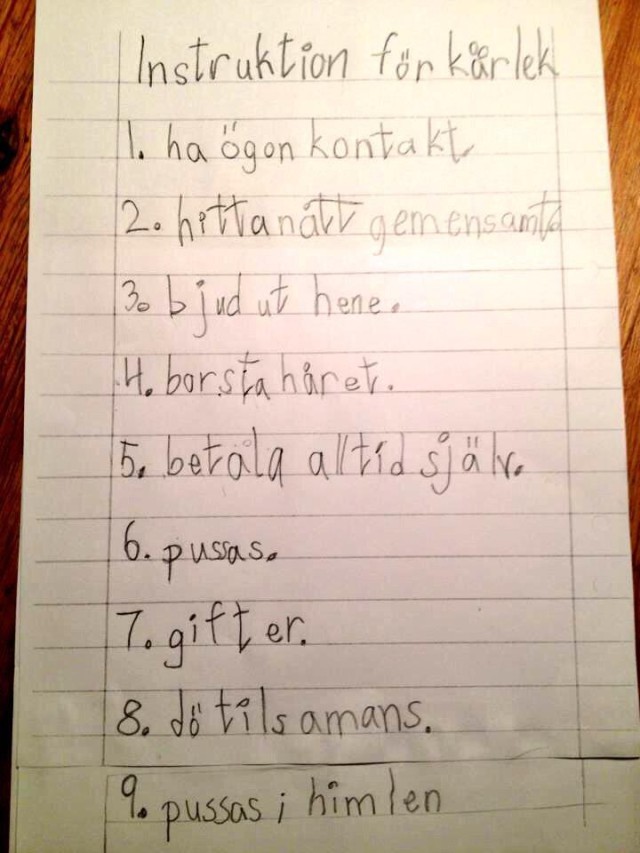 Instruktion för kärlek
1. ha ögon kontakt
2. hitta nått gemensamt
3. bjud ut hene.
4. borsta håret.
5. betala alltid själv.
6. pussas.
7. gifter.
8. dö tilsamans.
9. pussas i himlen